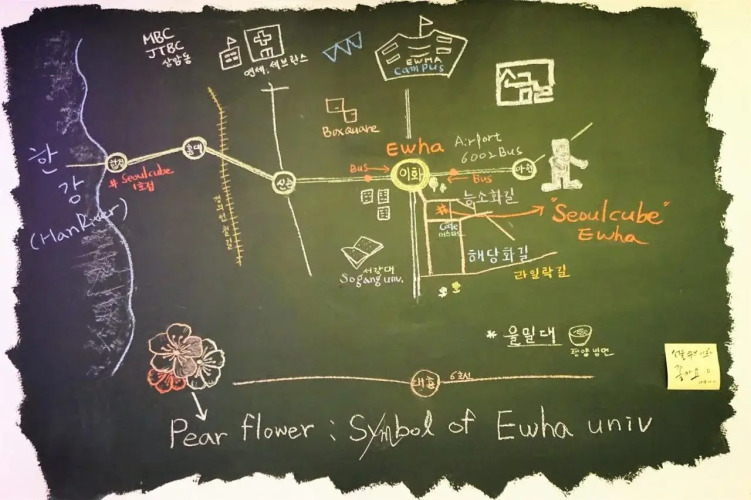 MBC
JTBC
상암동
연세, 세브란스
EWHA
Campus
Boxquare
Ewha
Airport
6002 Bus
한
강
(HanRiver)
합정
홍대
신촌
이화
아현
Bus
Bus
# Seoulcube
1호점
경의선 철길
능소화길
"Seoulcube"
Ewha
해당화길
라일락길
서강대
Sogang univ.
* 을밀대
평양냉면
대흥
6호선
Pear flower : Symbol of Ewha univ